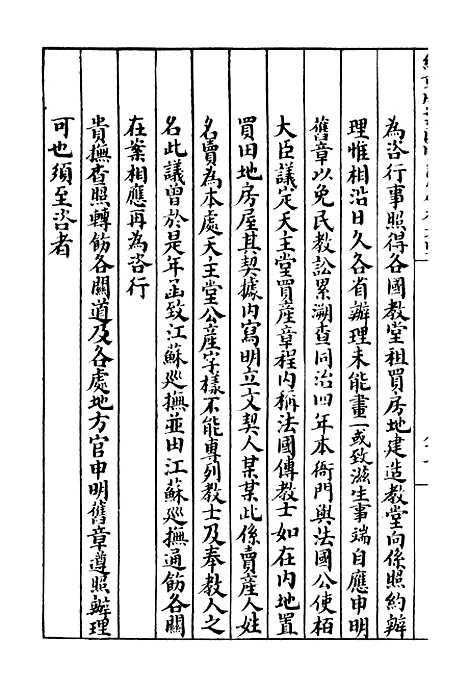 為咨行事照得各國教堂租買房地建造教堂向係照約辦
理惟相沿日久各省辦理未能畫一或致滋生事端自應申明
舊章以免民教訟累溯查同治四年本衙門與法國公使柏
大臣議定天主堂買產章程內稱法國傳教士如在內地置
買田地房屋其契據內寫明立文契人某某此係賣產人姓
名賣為本處天主堂公產字樣不能專列教士及奉教人之
名此議曾於是年函致江蘇廵撫並由江蘇廵撫通飭各關
在案相應再為咨行
貴撫查照轉飭各關道及各處地方官申明舊章遵照辦理
可也須至咨者